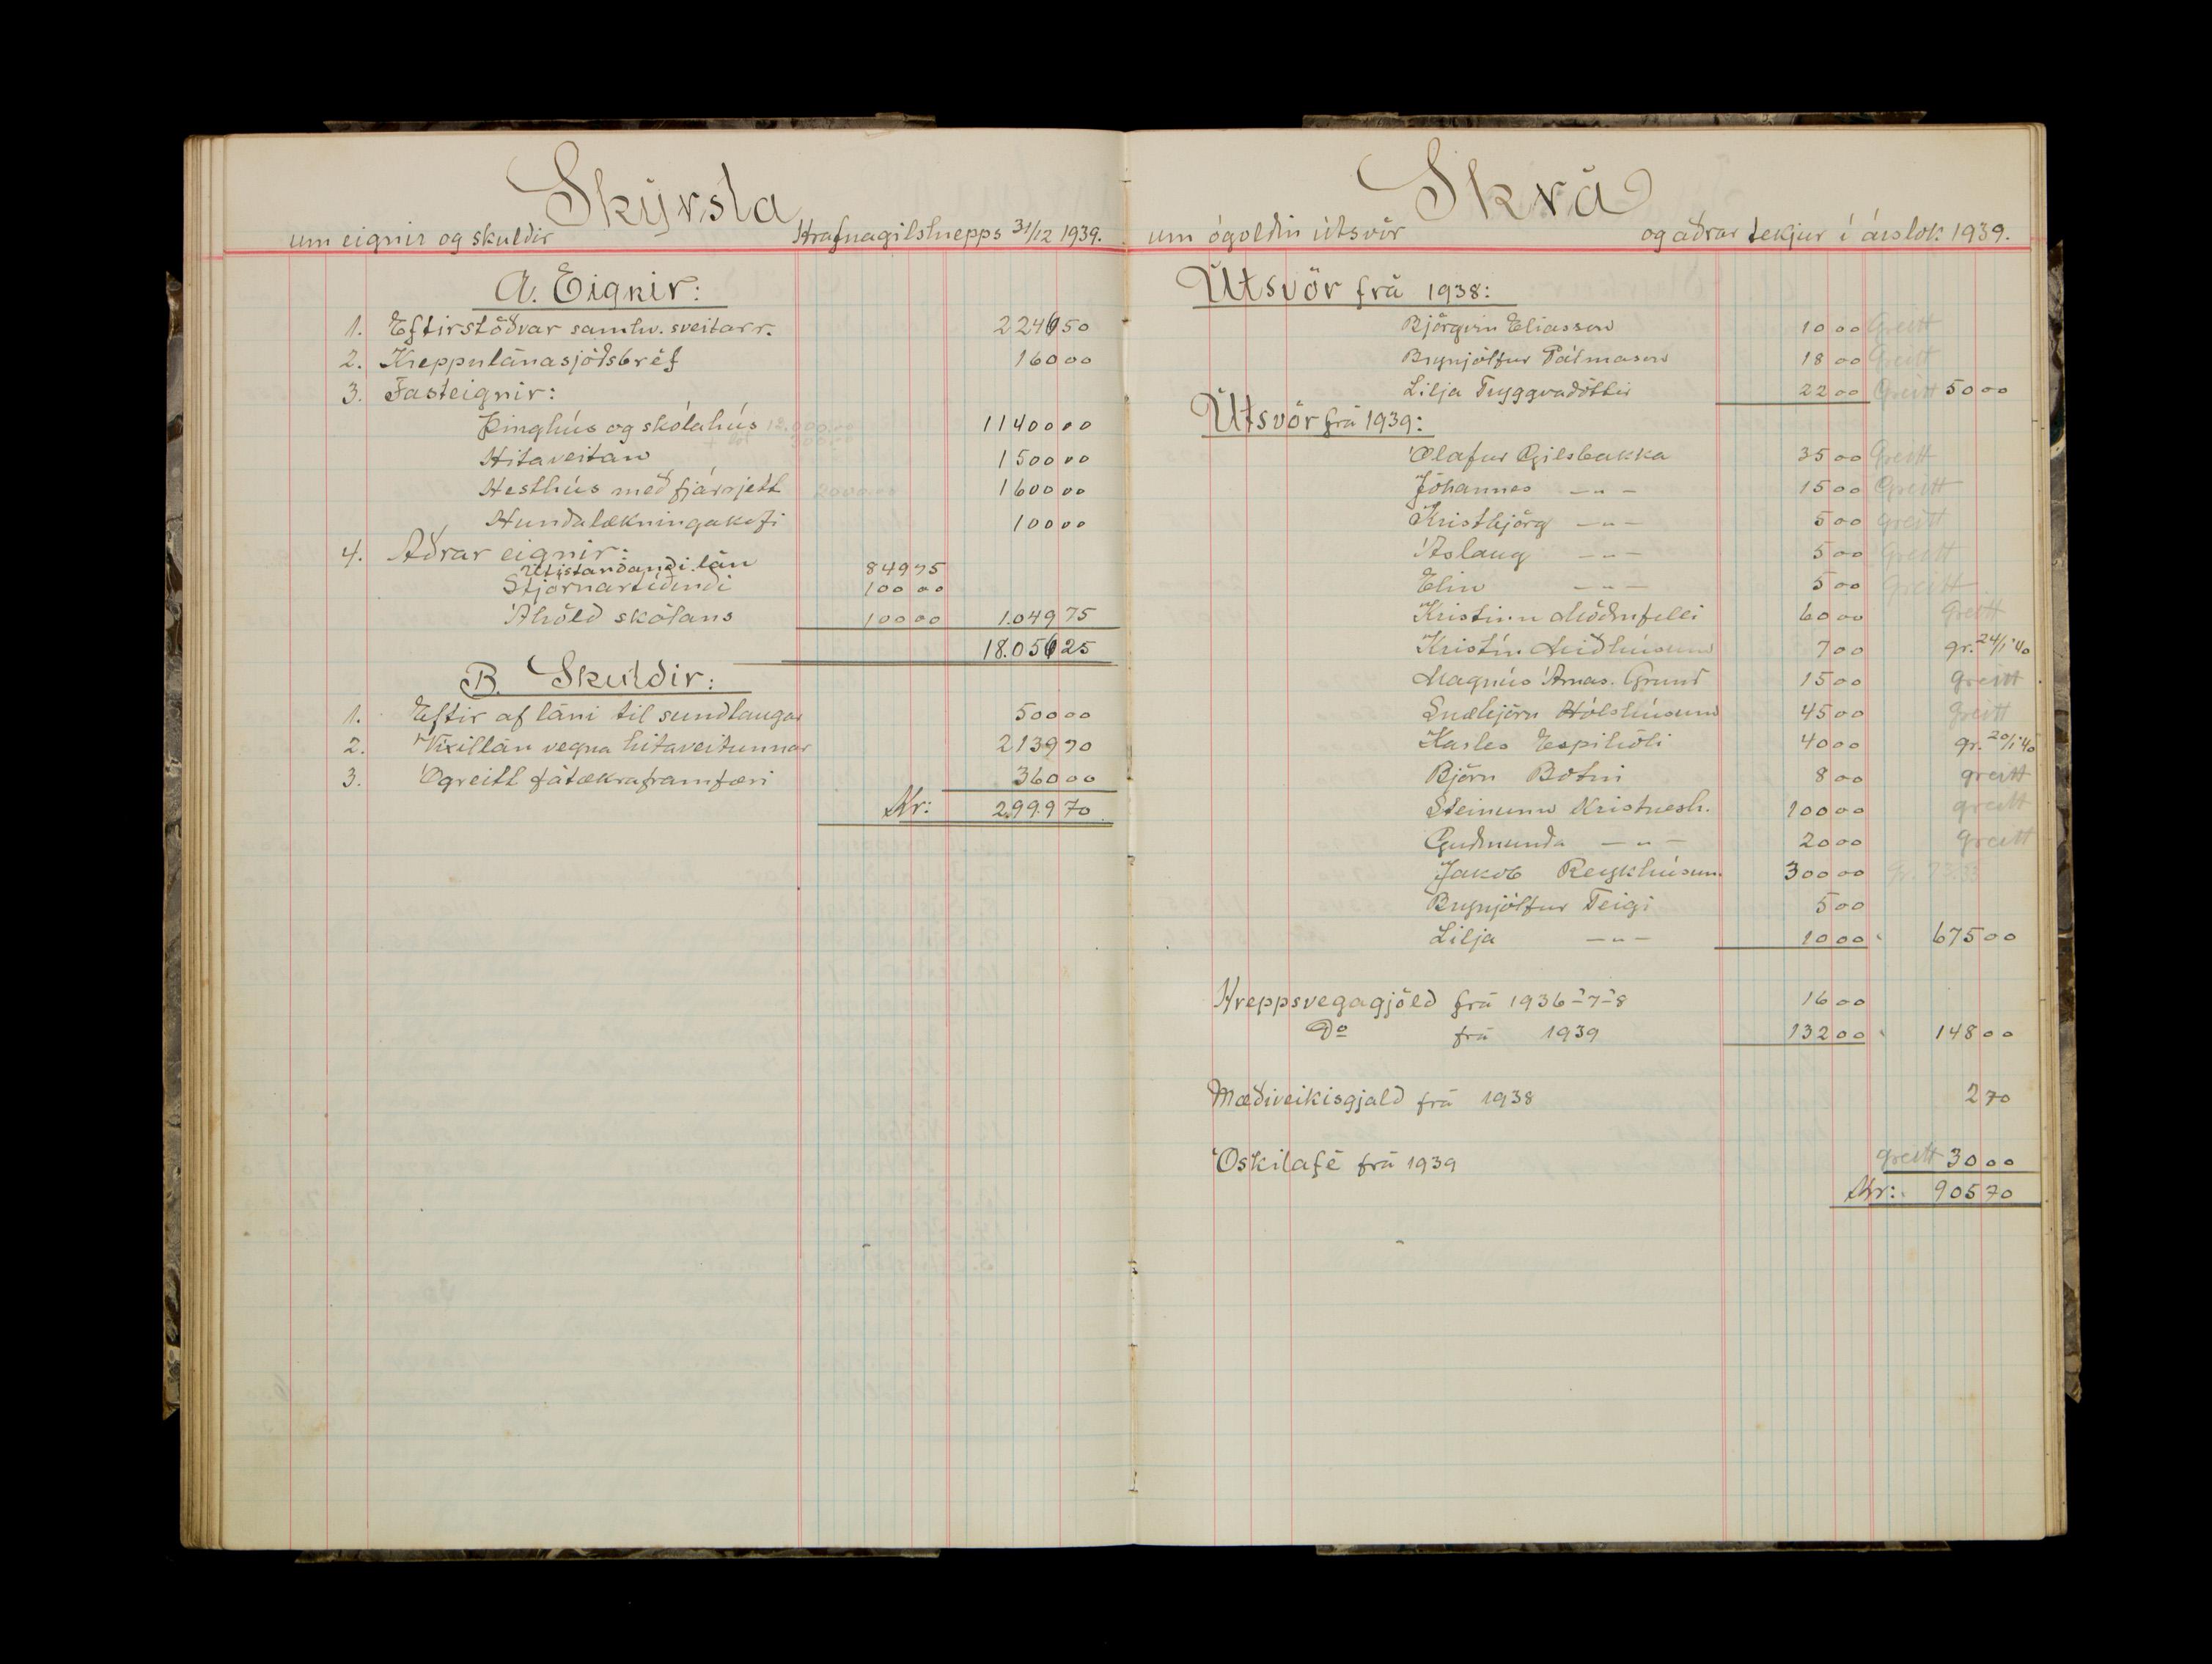 Skýrsla
um eignir og skuldir Hrafnagilshrepps 31/12 1939.
A. Eignir:
1. Eftirstöðvar samkv. sveitarr. 2246 50
2. Kreppulánasjóðsbréf 160 00
3. Fasteignir:
Þinghús og skólahús 12.000.00 11400 00
Hitaveitan 1500 00
Hesthús með fjárrjett 2000.00 1600 00
Hundalækningakofi 100 00
4. Aðrar eignir:
Útistandandi lán 849 75
Stjórnartíðindi 100 00
Áhöld skólans 100 00 1.049 75
18.056 25
B. Skuldir:
1. Eftir af láni til sundlaugar 500 00
2. Víxillán vegna hitaveitunnar 2139 70
3. Ógreitt fátækraframfæri 360 00
Kr: 2.999 70
Skrá
um ógoldin útsvör og aðrar tekjur í árslok 1939.
Útsvör frá 1938:
Björgvin Elíasson 10 00 Greitt
Brynjólfur Pálmason 18 00 Greitt
Lilja Tryggvadóttir 22 00 Greitt 50 00
Útsvör frá 1939:
Ólafur Gilsbakka 35 00 Greitt
Jóhannes — „ — 15 00 Greitt
Kristbjörg — „ — 5 00 Greitt
Áslaug — „ — 5 00 Greitt
Elín — „ — 5 00 Greitt
Kristinn Möðrufelli 60 00 Greitt
Kristín Miðhúsum 7 00 gr. 24/1 '40
Magnús Árnas. Grund 15 00 greitt
Snæbjörn Hólshúsum 45 00 greitt
Karles Espihóli 40 00 gr. 20/1 '40
Björn Botni 8 00 greitt
Steinunn Kristnesh. 100 00 greitt
Guðmunda — „ — 20 00 greitt
Jakob Reykhúsum 300 00 Gr.
Brynjólfur Teigi 5 00
Lilja — „ — 10 00 675 00
Hreppsvegagjöld frá 1936-'7-'8 16 00
Do frá 1939 132 00 148 00
Mæðiveikisgjald frá 1938 2 70
Óskilafé frá 1939 greitt 30 00
Kr: 905 70